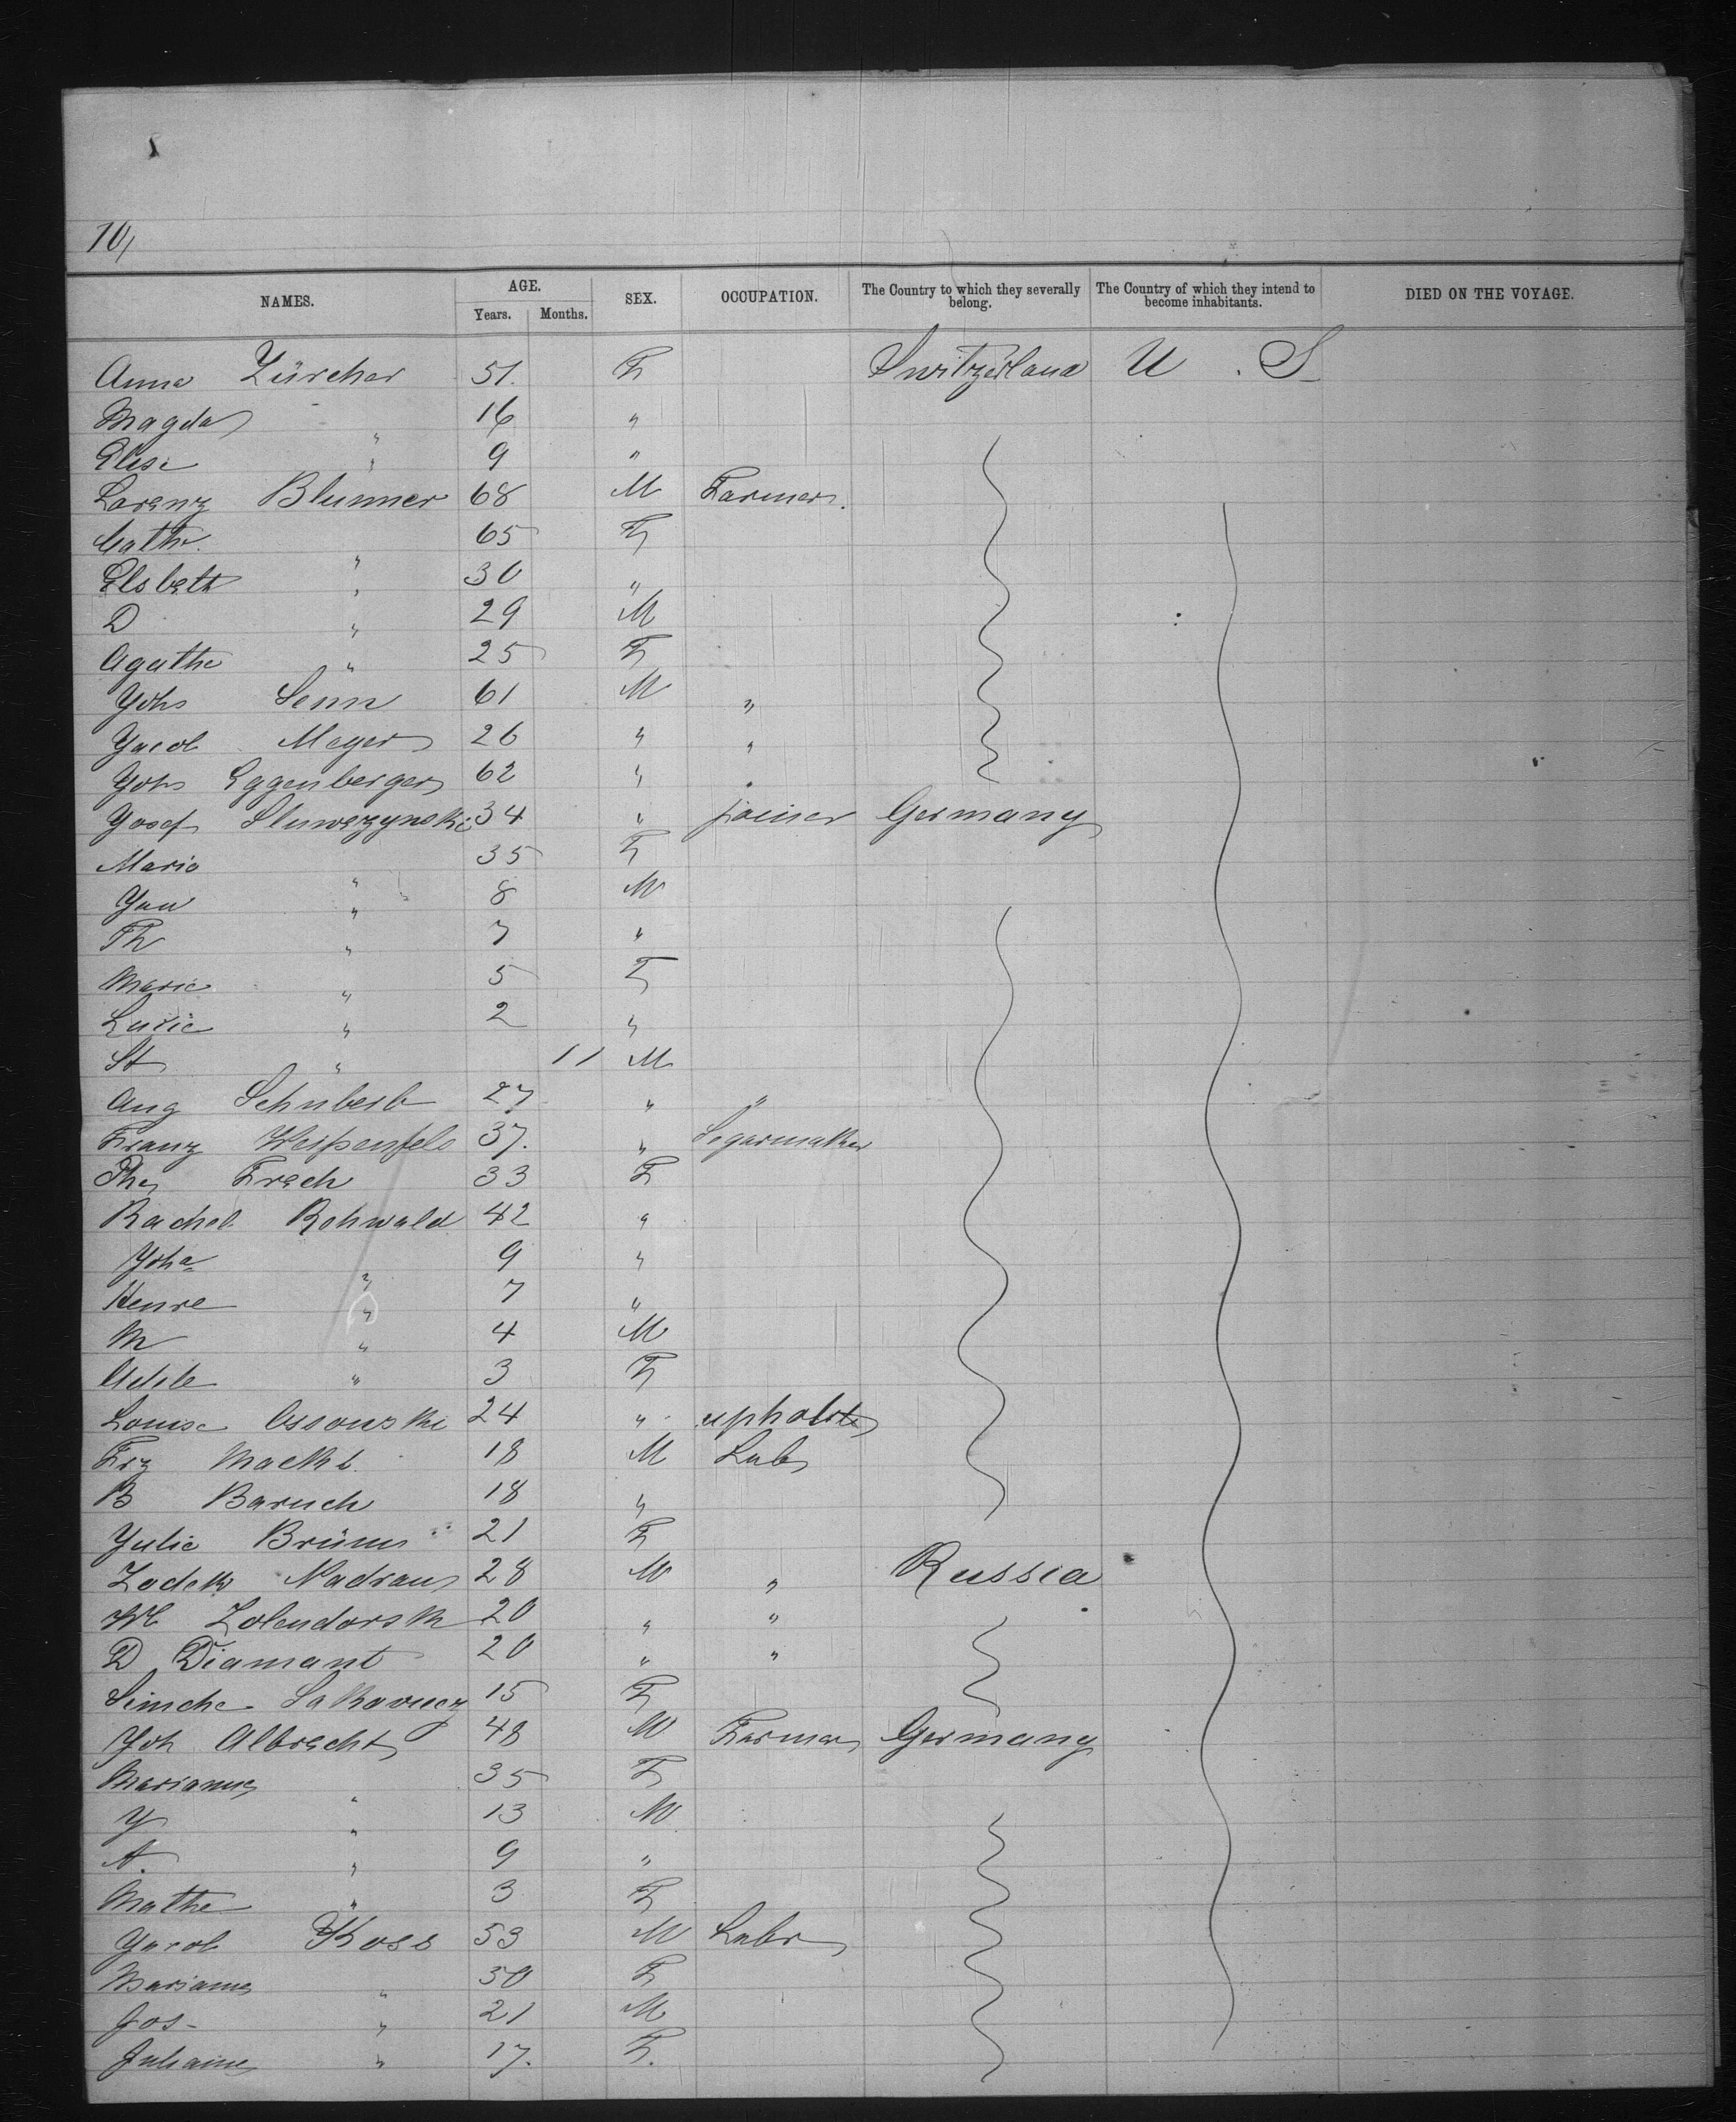 10/
NAMES. AGE. Years. Months. SEX. OCCUPATION. The Country to which they severally belong. The Country of which they intend to become inhabitants. DIED ON THE VOYAGE.
Anna Zürcher 51. F Switzerland U. S
Magda " 16 "
Elise " 9 "
Lorenz Blumer 68 M Farmer.
Cathr. " 65 F
Elsbeth " 30 "
D " 29 M
Agathe " 25 F
Yohs Senn 61 M "
Yacob Meyer 26 " "
Yohs Eggenberger 62 " "
Yosef 34 " joiner Germany
Maria " 35 F
Yan " 8 M
Th " 7 "
Marie " 5 F
Lucie " 2 "
St " 11 M
Aug Schubert 27 " "
Franz Weissenfels 37. " Segarmaker
Ther Frech 33 F
Rachel Rehwald 42 "
Yoha " 9 "
Henre " 7 "
M " 4 M
Adele " 3 F
Louise Ossowski 24 " upholster
Frz 18 M Labr
B Baruch 18 "
Yulie Brüms 21 F
Zodek Nadraus 28 M " Russia
20 " "
D Diamant 20 " "
Simche 15 F
Joh Albrecht 48 M Farmer Germany
Marianne " 35 F
Y " 13 M
A. " 9 "
Mathe " 3 F
Yacob Koss 53 M Labr
Marianne " 50 F
Jos- " 21 M
Juliaine " 17. F.